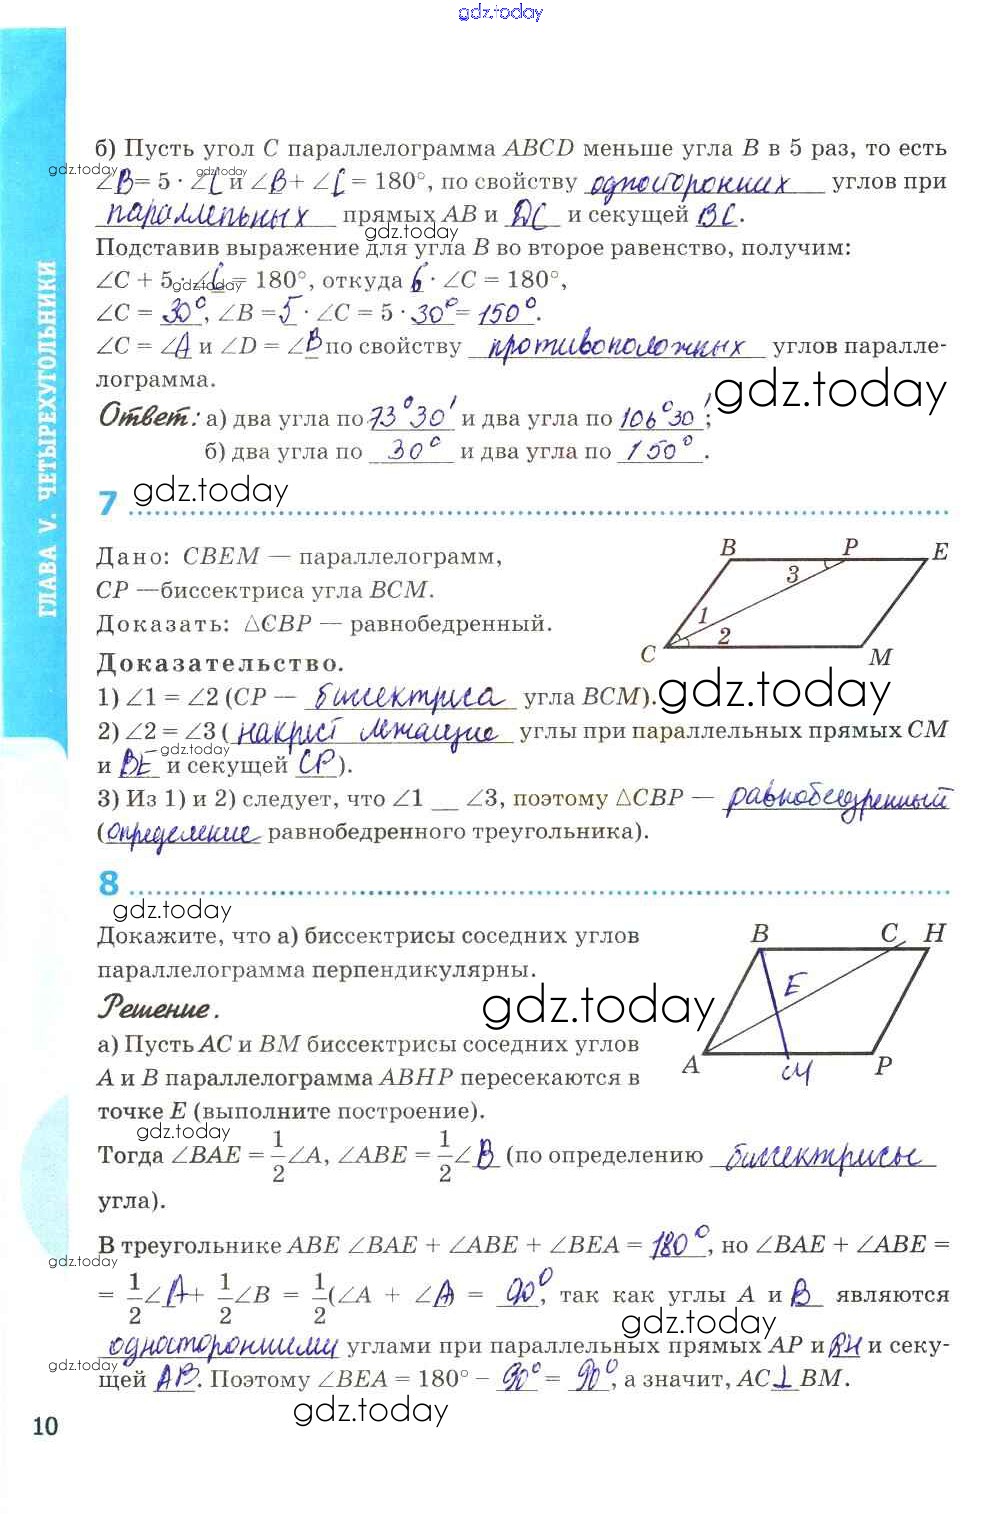 gdz.today
б) Пусть угол C параллелограмма ABCD меньше угла B в 5 раз, то есть
∠B = 5 · ∠C и ∠B + ∠C = 180°, по свойству односторонних углов при
параллельных прямых AB и DC и секущей BC.
Подставив выражение для угла B во второе равенство, получим:
∠C + 5 · ∠C = 180°, откуда 6 · ∠C = 180°,
∠C = 30°, ∠B = 5 · ∠C = 5 · 30° = 150°.
∠C = ∠A и ∠D = ∠B по свойству противоположных углов паралле-
лограмма.
Ответ: а) два угла по 73°30' и два угла по 106°30';
б) два угла по 30° и два угла по 150°.
gdz.today
7
Дано: CBEM — параллелограмм,
CP —биссектриса угла BCM.
Доказать: △CBP — равнобедренный.
Доказательство.
B P E
3
1
2
C M
1) ∠1 = ∠2 (CP — биссектриса угла BCM).
2) ∠2 = ∠3 (накрест лежащие углы при параллельных прямых CM
и BE и секущей CP).
3) Из 1) и 2) следует, что ∠1 __ ∠3, поэтому △CBP — равнобедренный
(определение равнобедренного треугольника).
8
gdz.today
Докажите, что а) биссектрисы соседних углов
параллелограмма перпендикулярны.
Решение.
а) Пусть AC и BM биссектрисы соседних углов
A и B параллелограмма ABHP пересекаются в
точке E (выполните построение).
B C H
E
A M P
Тогда ∠BAE = 1/2∠A, ∠ABE = 1/2∠B (по определению биссектрисы
угла).
В треугольнике ABE ∠BAE + ∠ABE + ∠BEA = 180°, но ∠BAE + ∠ABE =
= 1/2∠A + 1/2∠B = 1/2(∠A + ∠A) = 90°, так как углы A и B являются
односторонними углами при параллельных прямых AP и BH и секу-
щей AB. Поэтому ∠BEA = 180° – 90° = 90°, а значит, AC ⊥ BM.
gdz.today
10
ГЛАВА V. ЧЕТЫРЕХУГОЛЬНИКИ